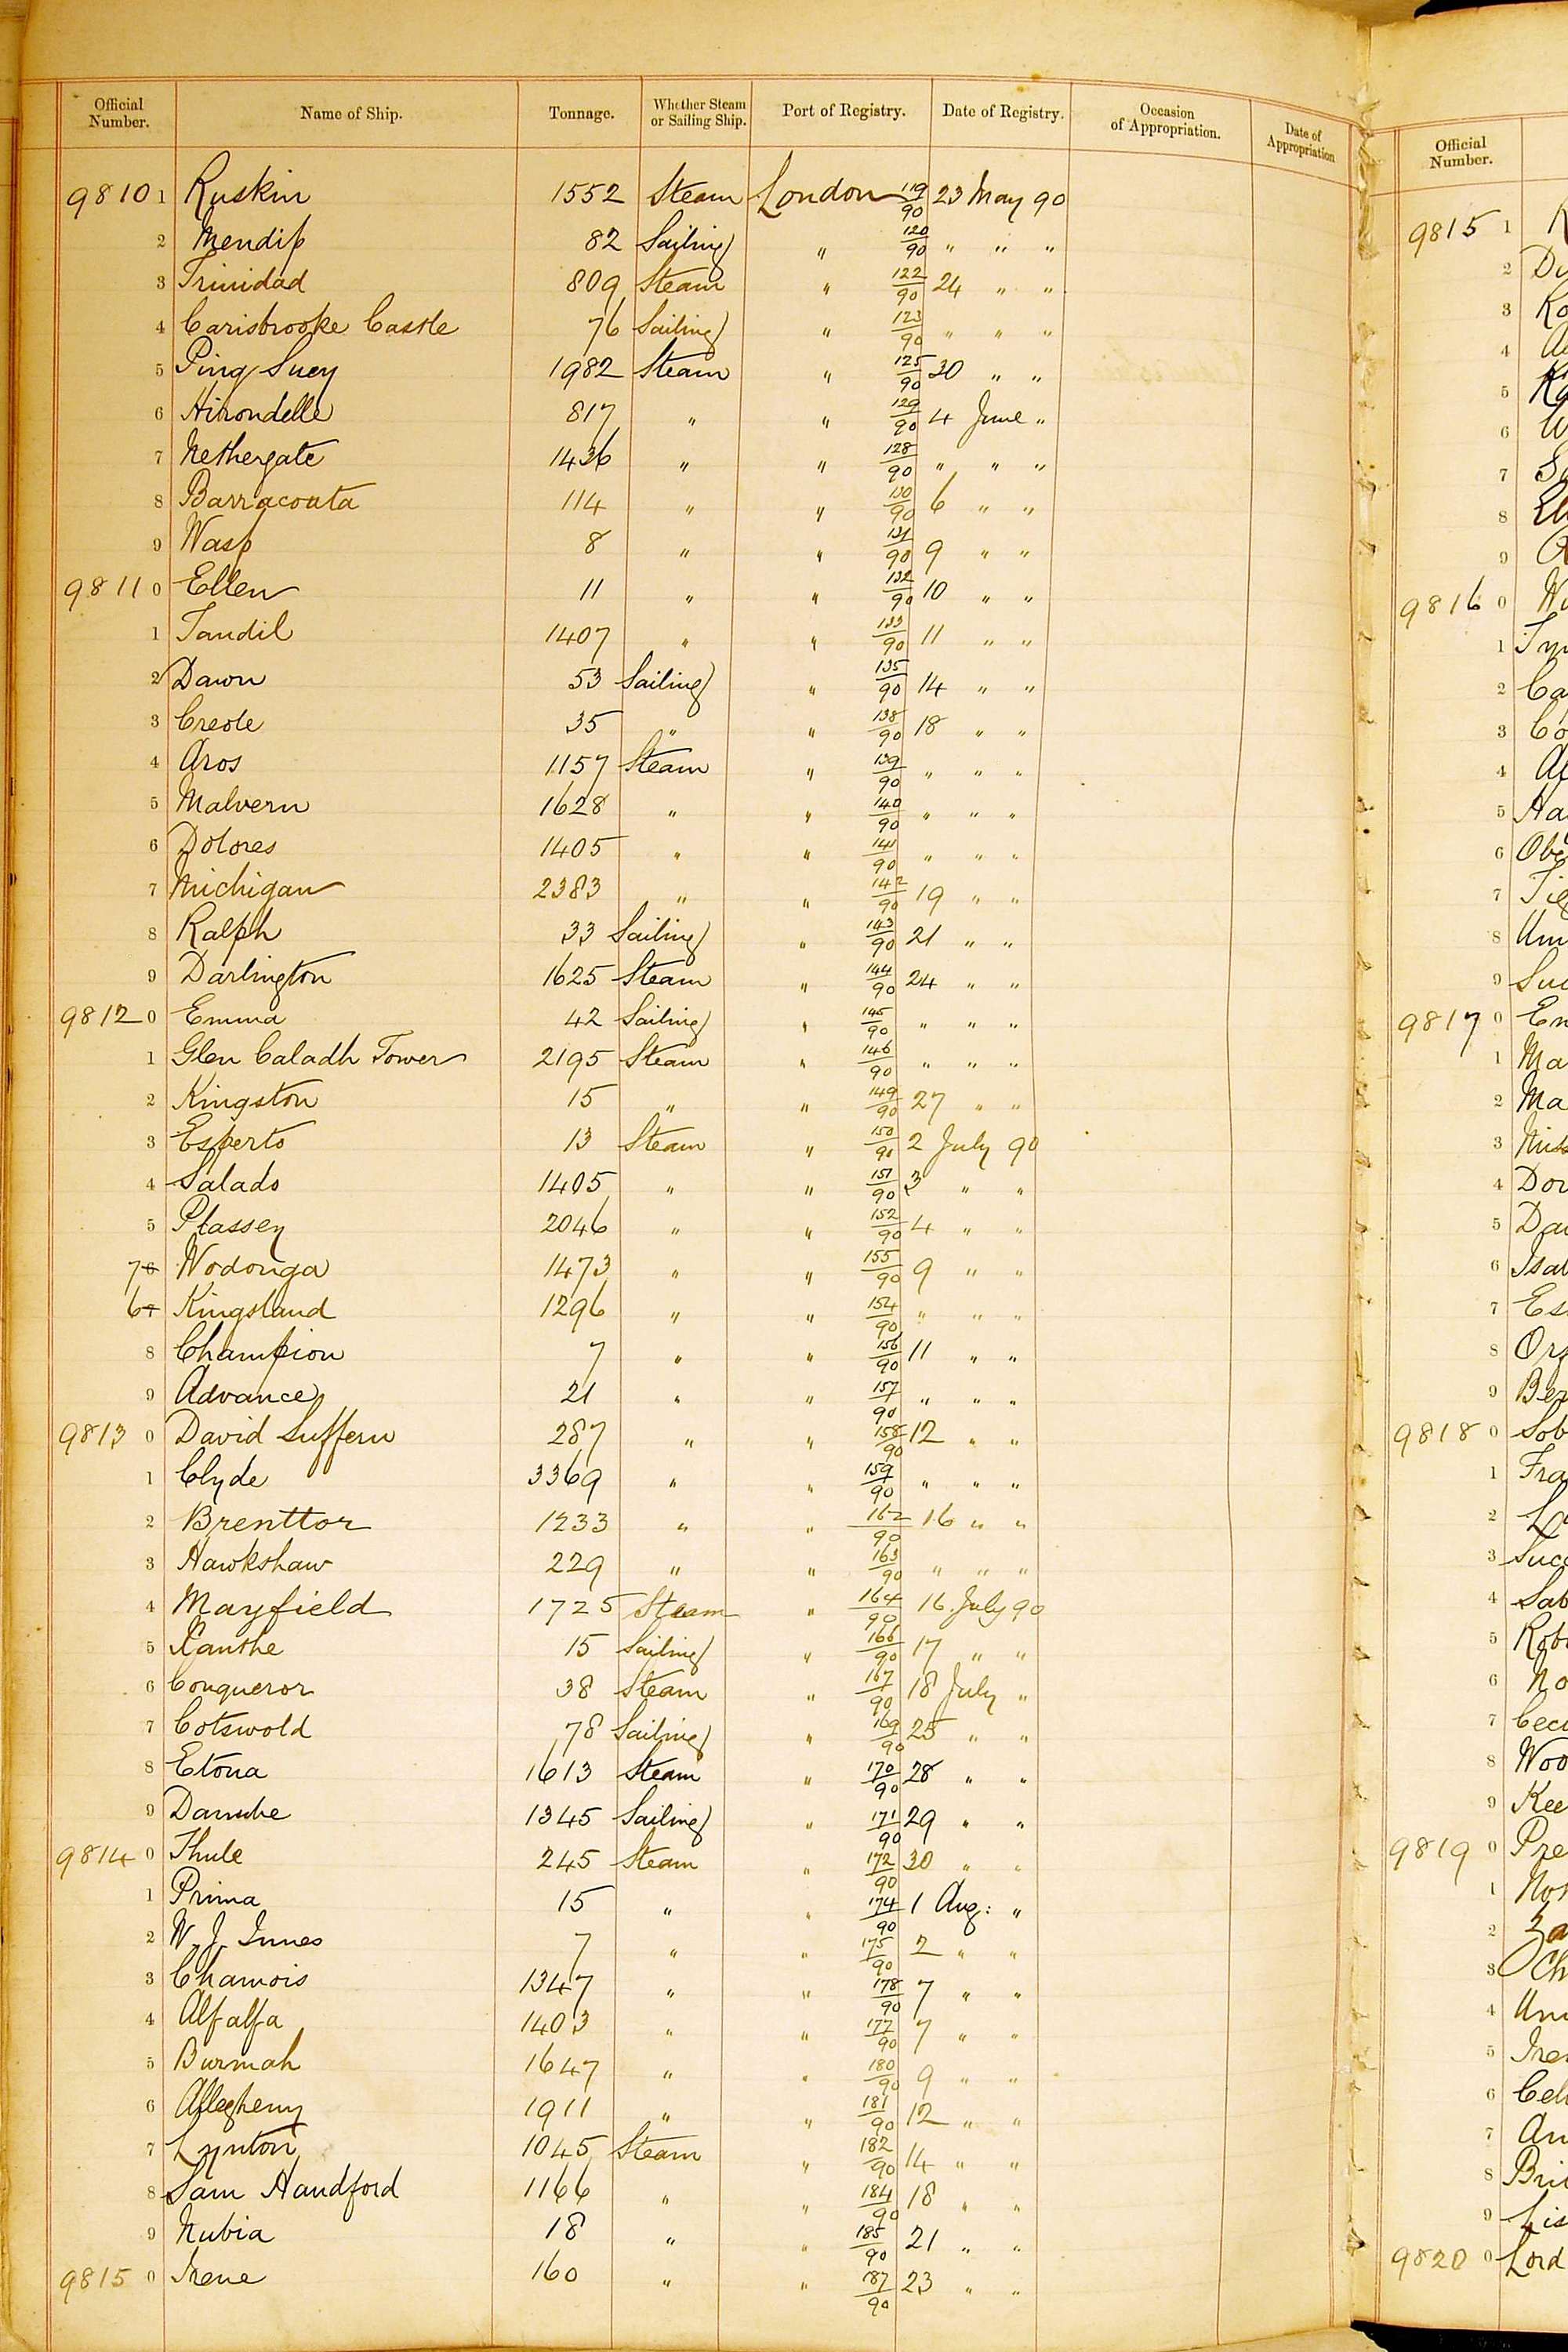 Official Number. Name of Ship. Tonnage. Whether Steam or Sailing Ship. Port of Registry. Date of Registry. Occasion of Appropriation. Date of Appropriation
9810 1 Ruskin 1552 Steam London 119/90 23 May 90
2 Mendip 82 Sailing " 120/90 " " "
3 Trinidad 809 Steam " 122/90 24 " "
4 Carisbrooke Castle 76 Sailing " 123/90 " " "
5 Ping Suey 1982 Steam " 125/90 30 " "
6 Hirondelle 817 " " 129/90 4 June "
7 Nethergate 1436 " " 128/90 " " "
8 Barracouta 114 " " 130/90 6 " "
9 Wasp 8 " " 131/90 9 " "
9811 0 Ellen 11 " " 132/90 10 " "
1 Tandil 1407 " " 133/90 11 " "
2 Dawn 53 Sailing " 135/90 14 " "
3 Creole 35 " " 138/90 18 " "
4 Aros 1157 Steam " 139/90 " " "
5 Malvern 1628 " " 140/90 " " "
6 Dolores 1405 " " 141/90 " " "
7 Michigan 2383 " " 142/90 19 " "
8 Ralph 33 Sailing " 143/90 21 " "
9 Darlington 1625 Steam " 144/90 24 " "
9812 0 Emma 42 Sailing " 145/90 " " "
1 Glen Caladh Tower 2195 Steam " 146/90 " " "
2 Kingston 15 " " 149/90 27 " "
3 Esperto 13 Steam " 150/90 2 July 90
4 Salado 1405 " " 151/90 3 " "
5 Plassey 2046 " " 152/90 4 " "
7 6 Wodonga 1473 " " 155/90 9 " "
6 7 Kingsland 1296 " " 154/90 " " "
8 Champion 7 " " 156/90 11 " "
9 Advance 21 " " 157/90 " " "
9813 0 David Suffern 287 " " 158/90 12 " "
1 Clyde 3369 " " 159/90 " " "
2 Brenttor 1233 " " 162/90 16 " "
3 Hawkshaw 229 " " 163/90 " " "
4 Mayfield 1725 Steam " 164/90 16 July 90
5 Xanthe 15 Sailing " 166/90 17 " "
6 Conqueror 38 Steam " 167/90 18 July "
7 Cotswold 78 Sailing " 169/90 25 " "
8 Etona 1613 Steam " 170/90 28 " "
9 Danube 1345 Sailing " 171/90 29 " "
9814 0 Thule 245 Steam " 172/90 30 " "
1 Prima 15 " " 174/90 1 Aug: "
2 W. J. Innes 7 " " 175/90 2 " "
3 Chamois 1347 " " 178/90 7 " "
4 Alfalfa 1403 " " 177/90 7 " "
5 Burmah 1647 " " 180/90 9 " "
6 Allegheny 1911 " " 181/90 12 " "
7 Lynton 1045 Steam " 182/90 14 " "
8 Sam Handford 1166 " " 184/90 18 " "
9 Nubia 18 " " 185/90 21 " "
9815 0 Irene 160 " " 187/90 23 " "
Official Number.
9815 1
2
3
4
5
6
7
8
9
9816 0
1
2
3
4
5
6
7
8
9
9817 0
1
2
3
4
5
6
7
8
9
9818 0
1
2
3
4
5
6
7
8
9
9819 0
1
2
3
4
5
6
7
8
9
9820 0 Lord